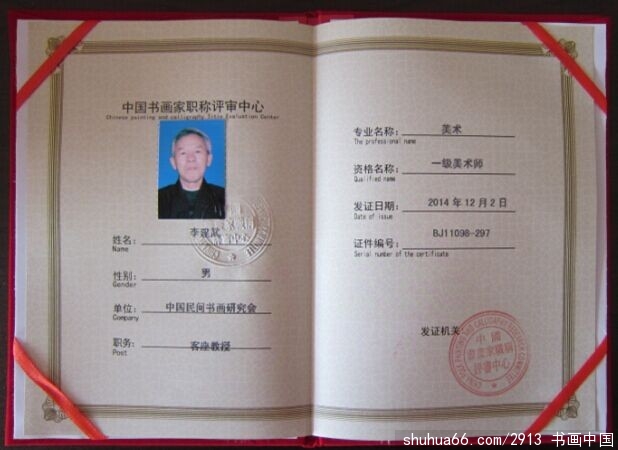 中国书画家职称评审中心
Chinese painting and calligraphy Title Evaluation Center
姓名：
Name
性别： 男
Gender
单位： 中国民间书画研究会
Company
职务： 客座教授
Post
专业名称： 美术
The professional name
资格名称： 一级美术师
Qualified name
发证日期： 2014 年 12 月 2 日
Date of issue
证件编号： BJ11098-297
Serial number of the certificate
发证机关
中國
書畫家職稱
評審中心
shuhua66.com/2913 书画中国